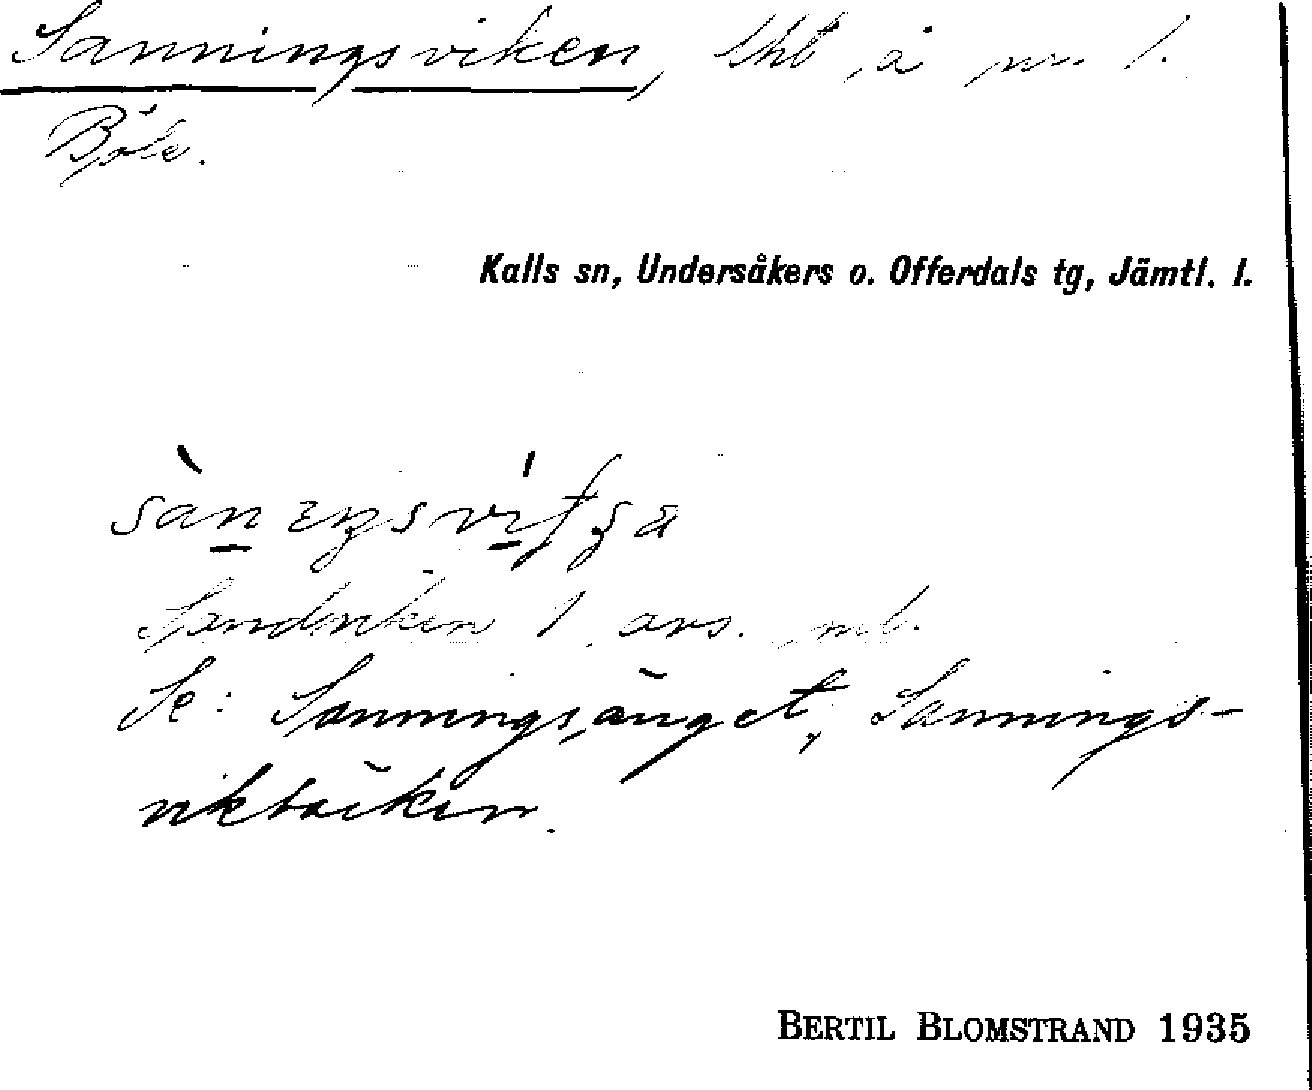 Sanningsviken, lht å nr. 1.
Böle.
Kalls sn, Undersåkers o. Offerdals tg, Jämtl. l.
Sandviken 1 avs.
Se: Sanningsänget, Sannings-
vikbäcken.
BERTIL BLOMSTRAND 1935